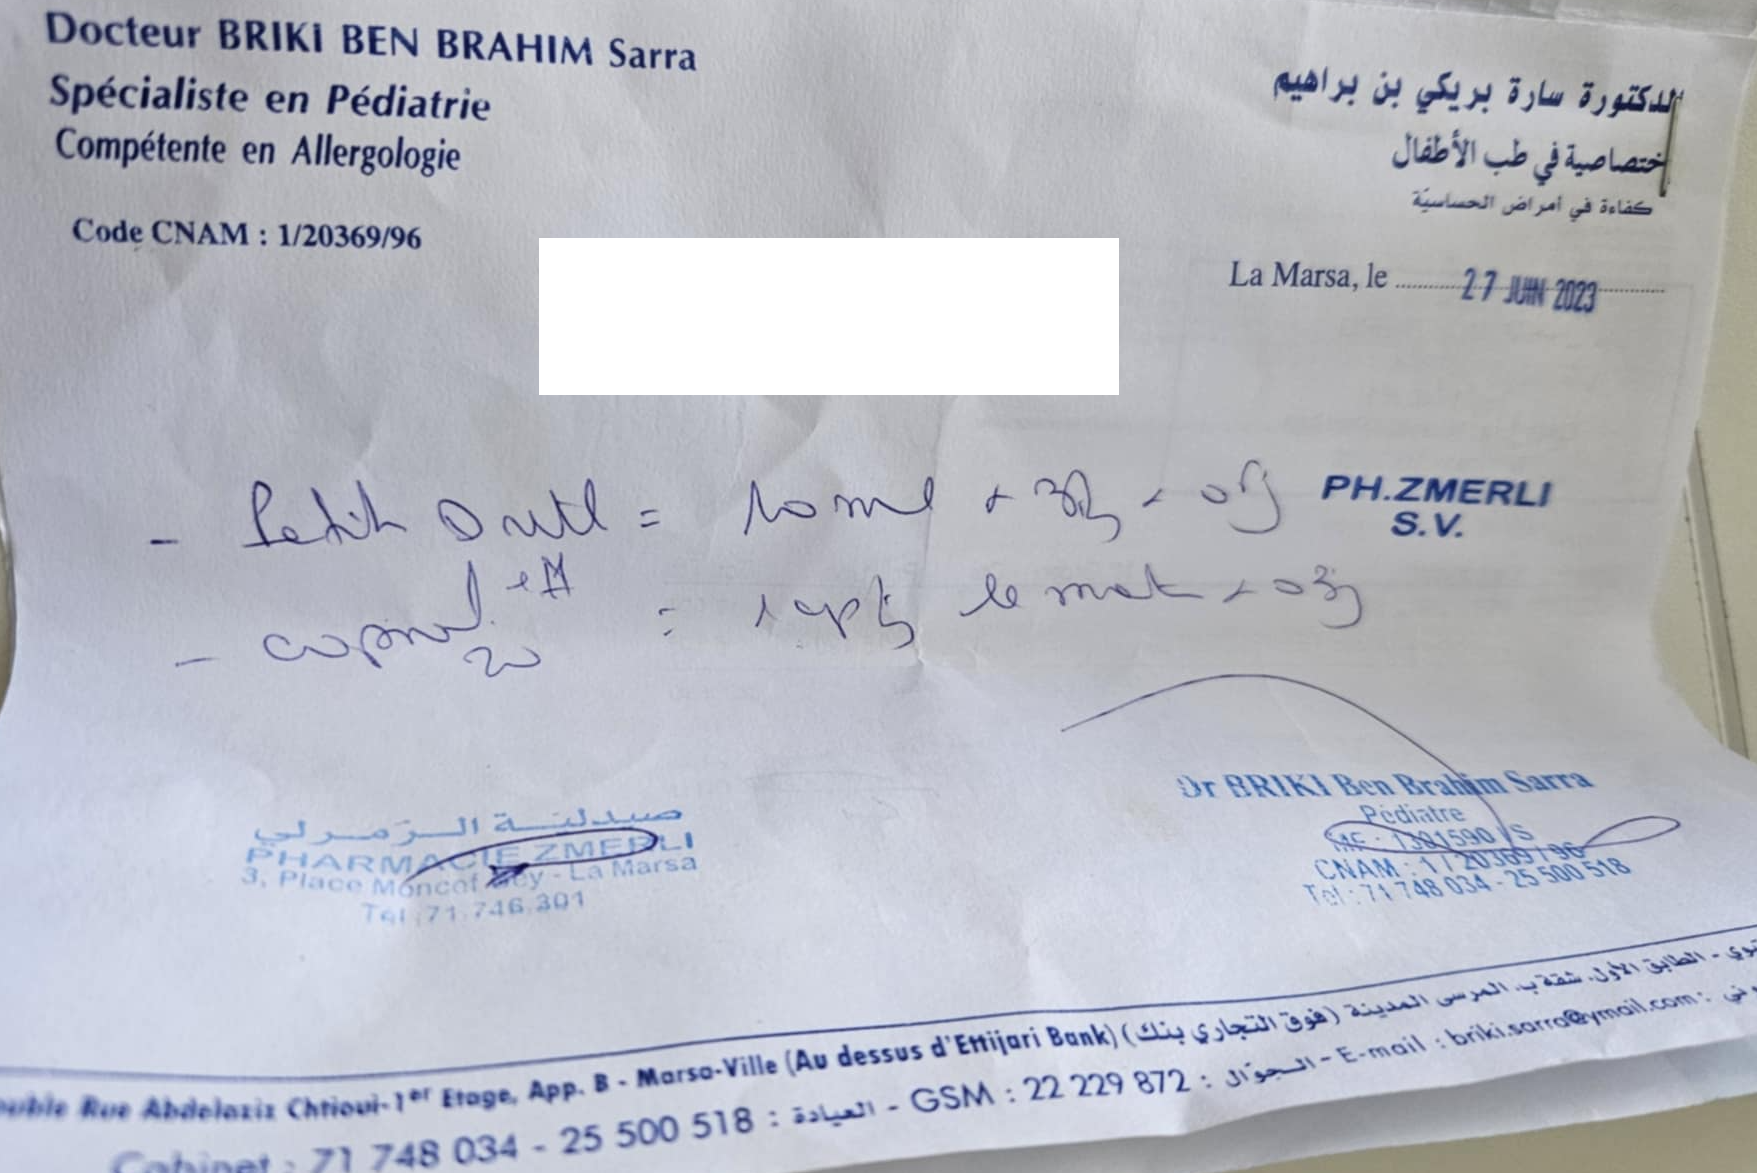 Docteur BRIKI BEN BRAHIM Sarra
Spécialiste en Pédiatrie
Compétente en Allergologie
Code CNAM : 1/20369/96
الدكتورة سارة بريكي بن براهيم
إختصاصية في طب الأطفال
كفاءة في أمراض الحساسيّة
La Marsa, le 27 JUIN 2023
- = 10 ml
PH.ZMERLI
S.V.
- 20 = le mat
صيدليّة الزمرلي
PHARMACIE ZMERLI
3, Place Moncef Bey - La Marsa
Tél : 71.746.301
Dr BRIKI Ben Brahim Sarra
Pédiatre
CNAM : 1 / 20369 / 96
Tel : 71 748 034 - 25 500 518
Rue Abdelaziz Chtioui-1er Etage, App. B - Marsa-Ville (Au dessus d'Ettijari Bank) (فوق التجاري بنك) الطابق الأول، شقة ب، المرسى المدينة
Cabinet : 71 748 034 - 25 500 518 : العيادة - GSM : 22 229 872 : الجوّال - E-mail : briki.sarra@ymail.com :